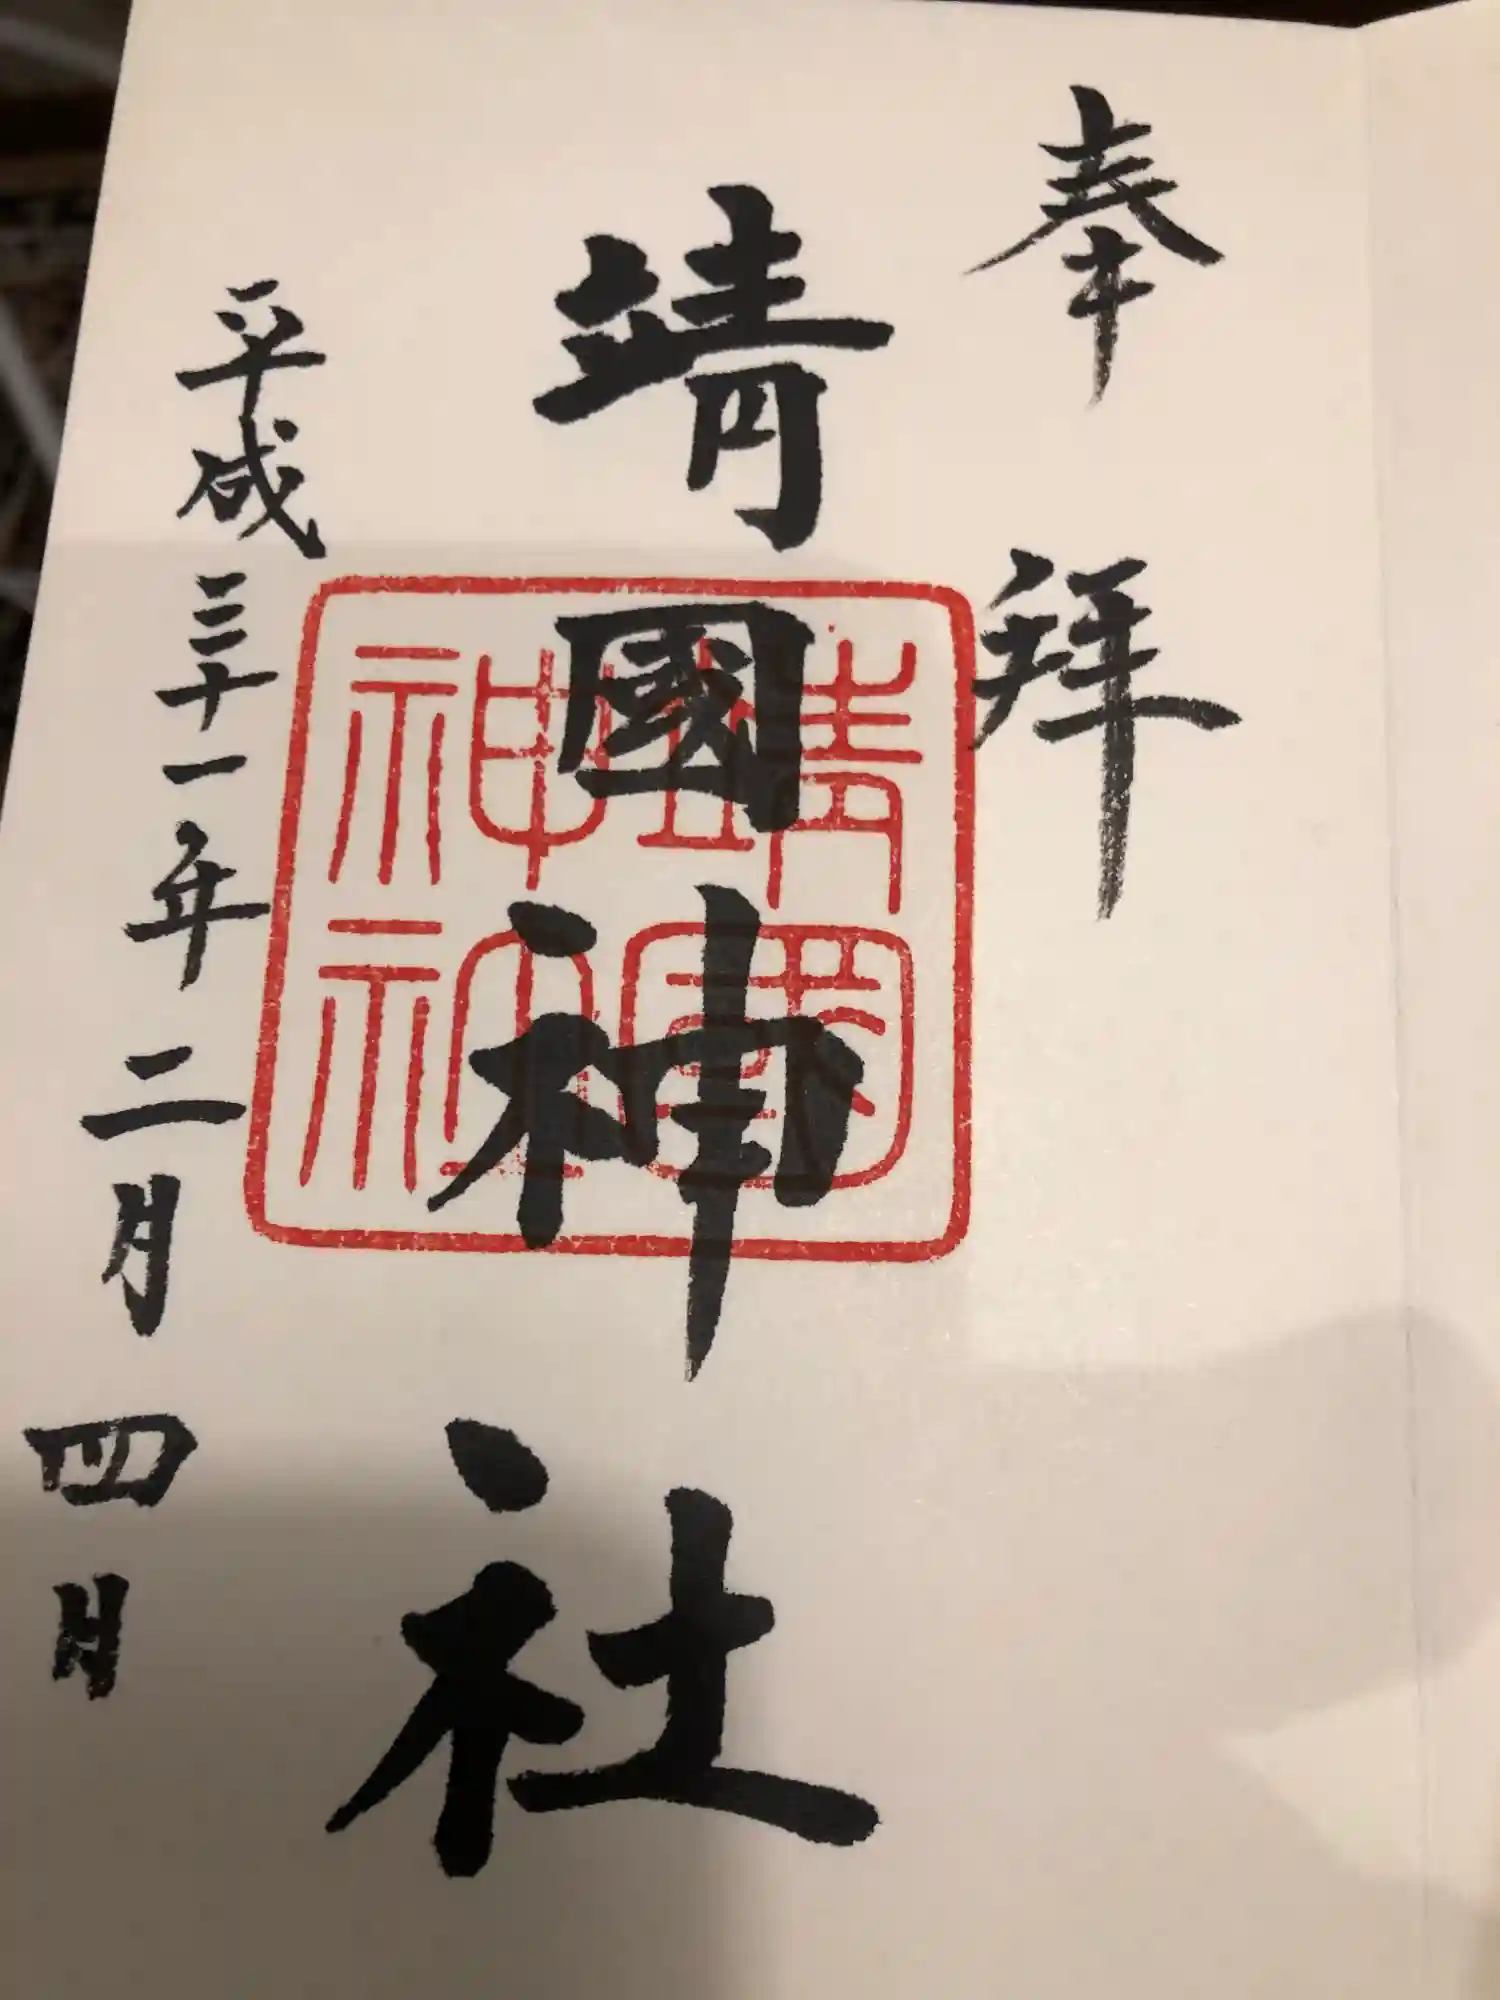 奉拝
靖國神社
靖國
神社
平成三十一年二月四月